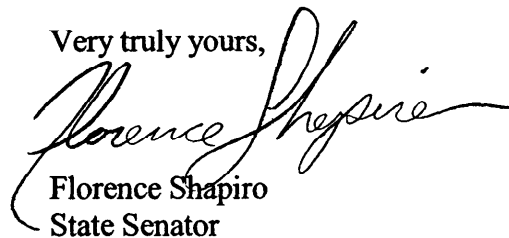 Very truly yours,
Florence Shapiro
Florence Shapiro
State Senator